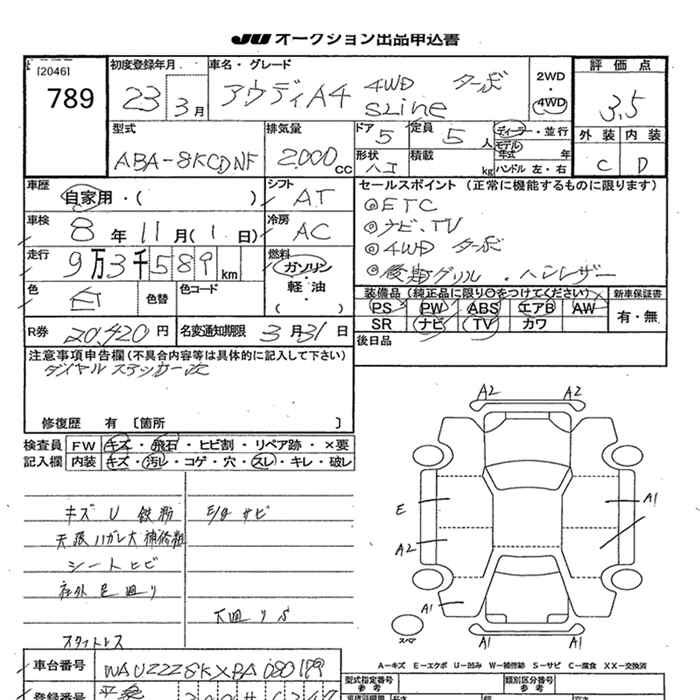 JU オークション出品申込書
[2046]
789
初度登録年月
23 3月
車名・グレード
アウディA4 4WD ターボ
SLine
2WD
・
4WD
評価点
3.5
外装 内装
C D
型式
ABA-8KCDNF
排気量
2000 cc
ドア 5
定員 5 人
ディーラー・並行
モデル
年式 年
形状
積載 kg
ハンドル 左・右
車歴
自家用・( )
シフト
AT
セールスポイント (正常に機能するものに限ります)
◎ETC
◎ナビ、TV
◎4WD ターボ
車検
8年11月(1日)
冷房
AC
走行
9万3千589km
燃料
ガソリン
・
軽油
・
( )
色
白
色替
色コード
装備品(純正品に限り○をつけてください)
新車保証書
PS PW ABS エアB AW
SR ナビ TV カワ
有・無
R券 20,420円
名変通知期限 3月31日
後日品
注意事項申告欄(不具合内容等は具体的に記入して下さい)
修復歴 有 〔箇所 〕
検査員 FW キズ・飛石・ヒビ割・リペア跡・×要
記入欄 内装 キズ・汚レ・コゲ・穴・スレ・キレ・破レ
A2 A2
E
A2
A1
A1
A1 A1
スペア
キズ U 鉄粉
E/g サビ
シートヒビ
社外足回り
下回りS
スタットレス
A-キズ E-エクボ U-凹み W-補修跡 S-サビ C-腐食 XX-交換済
車台番号
WAUZZZ8KXBA080189
型式指定番号
参考
類別区分番号
参考
登録番号